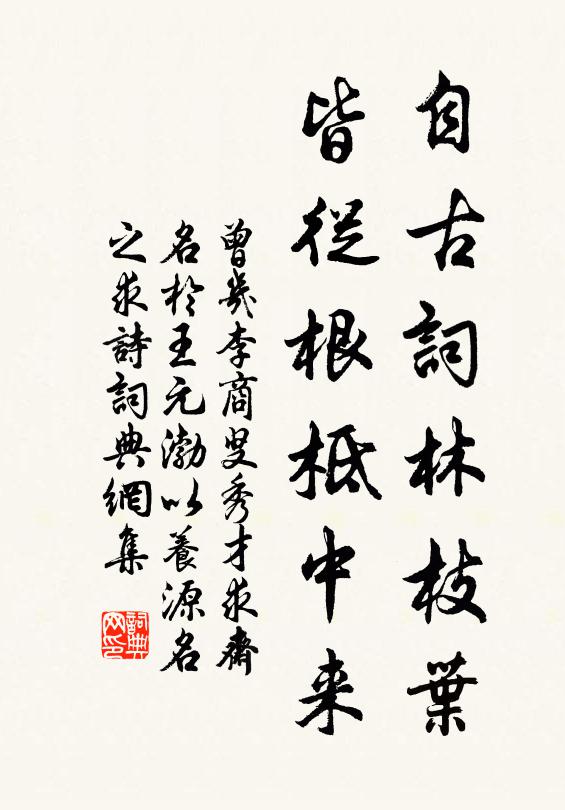 自古詞林枝葉
皆從根柢中来
曾幾李商叟秀才求齋
名於王元渤以養源名
之求詩詞典網集
詞典网印